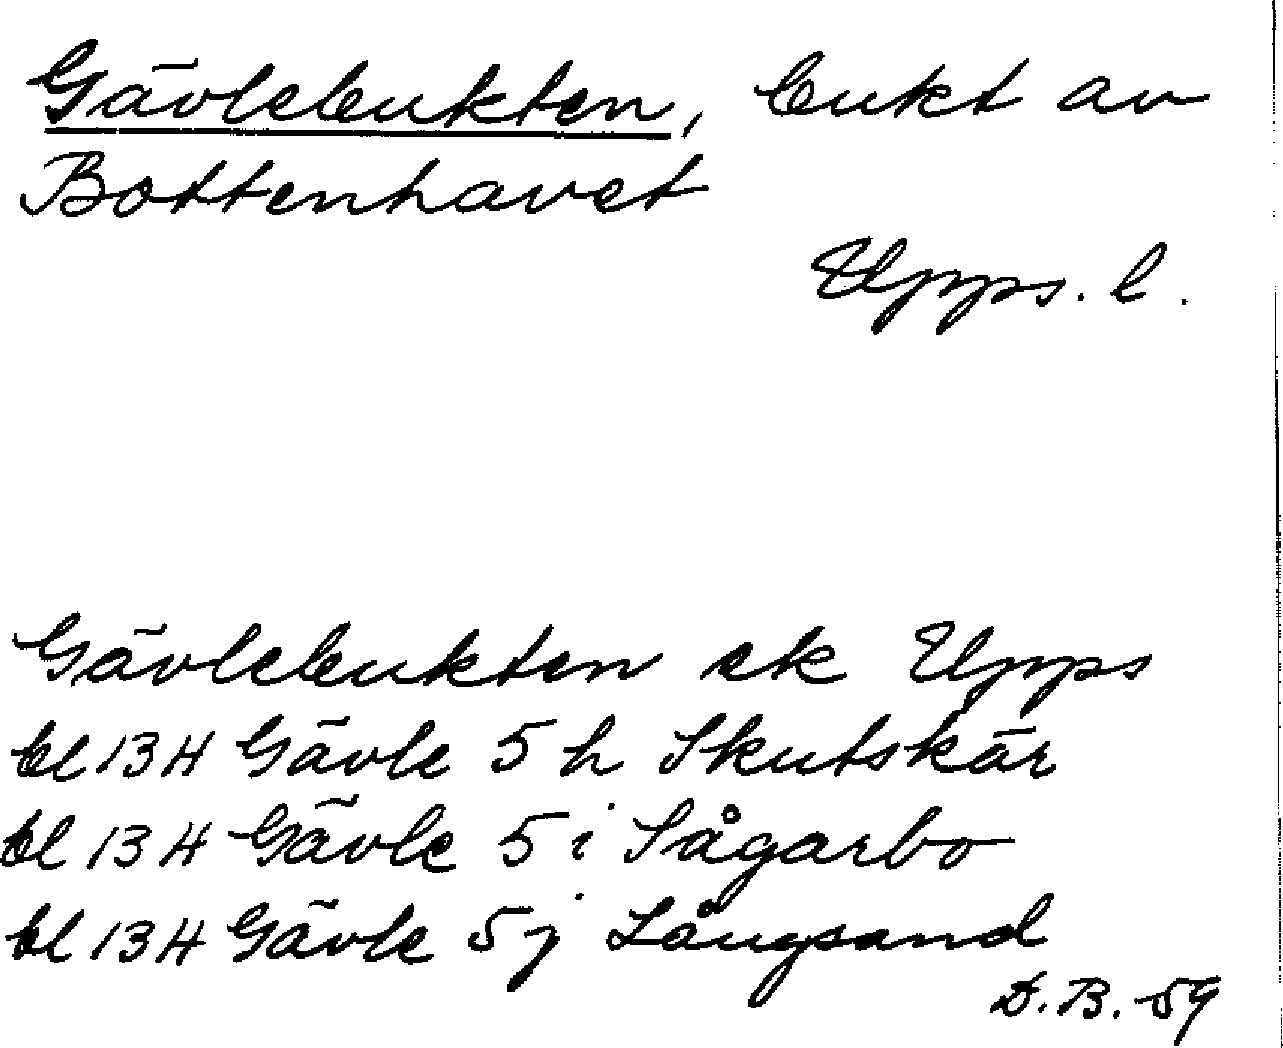 Gävlebukten, bukt av
Bottenhavet
Upps. l.
Gävlebukten ek Upps
bl 13 H Gävle 5 h Skutskär
bl 13 H Gävle 5 i Sågarbo
bl 13 H Gävle 5 j Långsand
D.B. 59